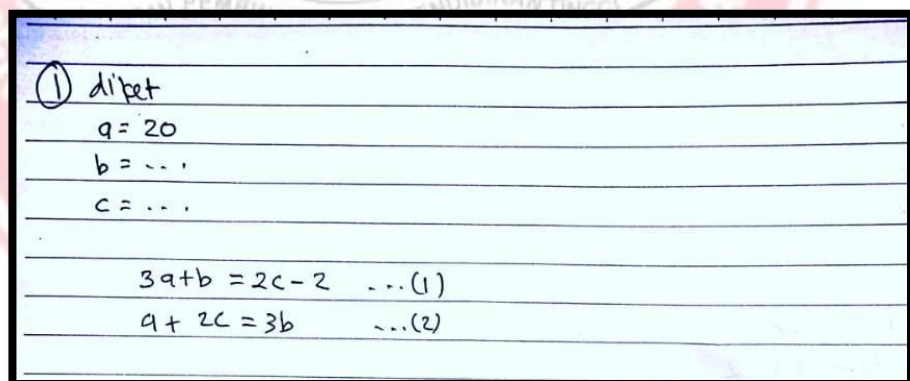 ① diket
a = 20
b = ....
c = ....
3a+b = 2c - 2 ....(1)
a + 2c = 3b ....(2)